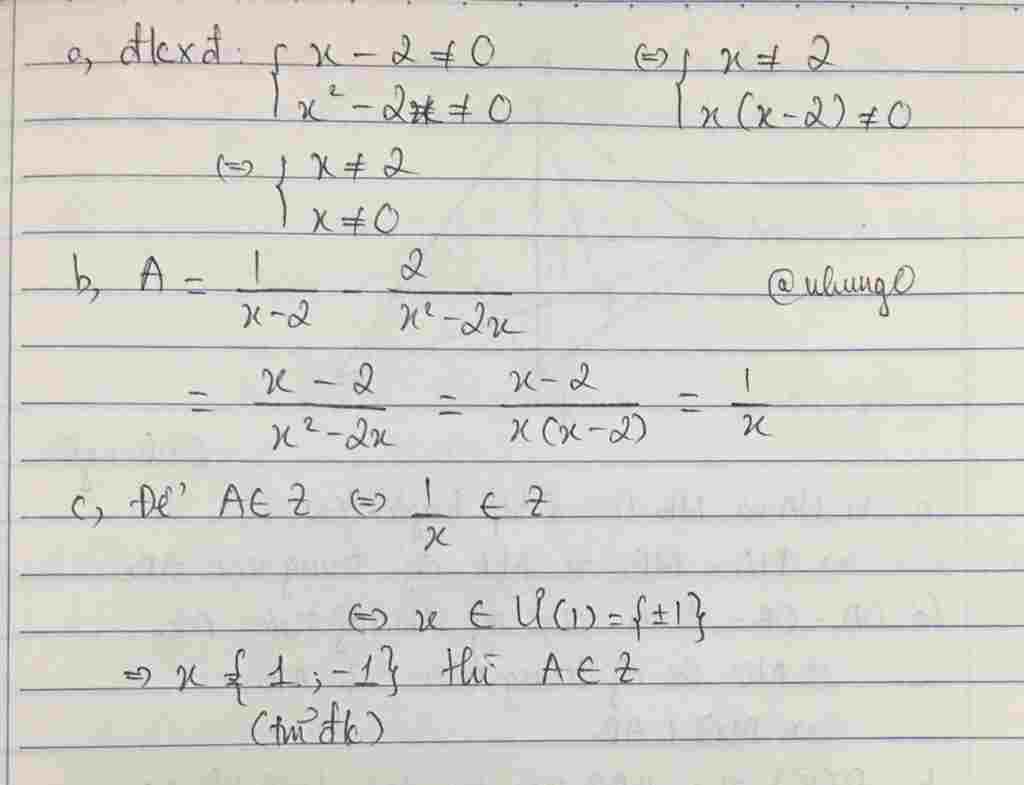 a, đkxđ: { x - 2 ≠ 0 (=) { x ≠ 2
x² - 2x ≠ 0 x(x-2) ≠ 0
(=) { x ≠ 2
x ≠ 0
b, A = 1/(x-2) - 2/(x²-2x) @nhung0
= (x-2)/(x²-2x) = (x-2)/(x(x-2)) = 1/x
c, Để A ∈ Z (=) 1/x ∈ Z
(=) x ∈ Ư(1) = {±1}
=> x { 1 ; -1} thì A ∈ Z
(tm đk)